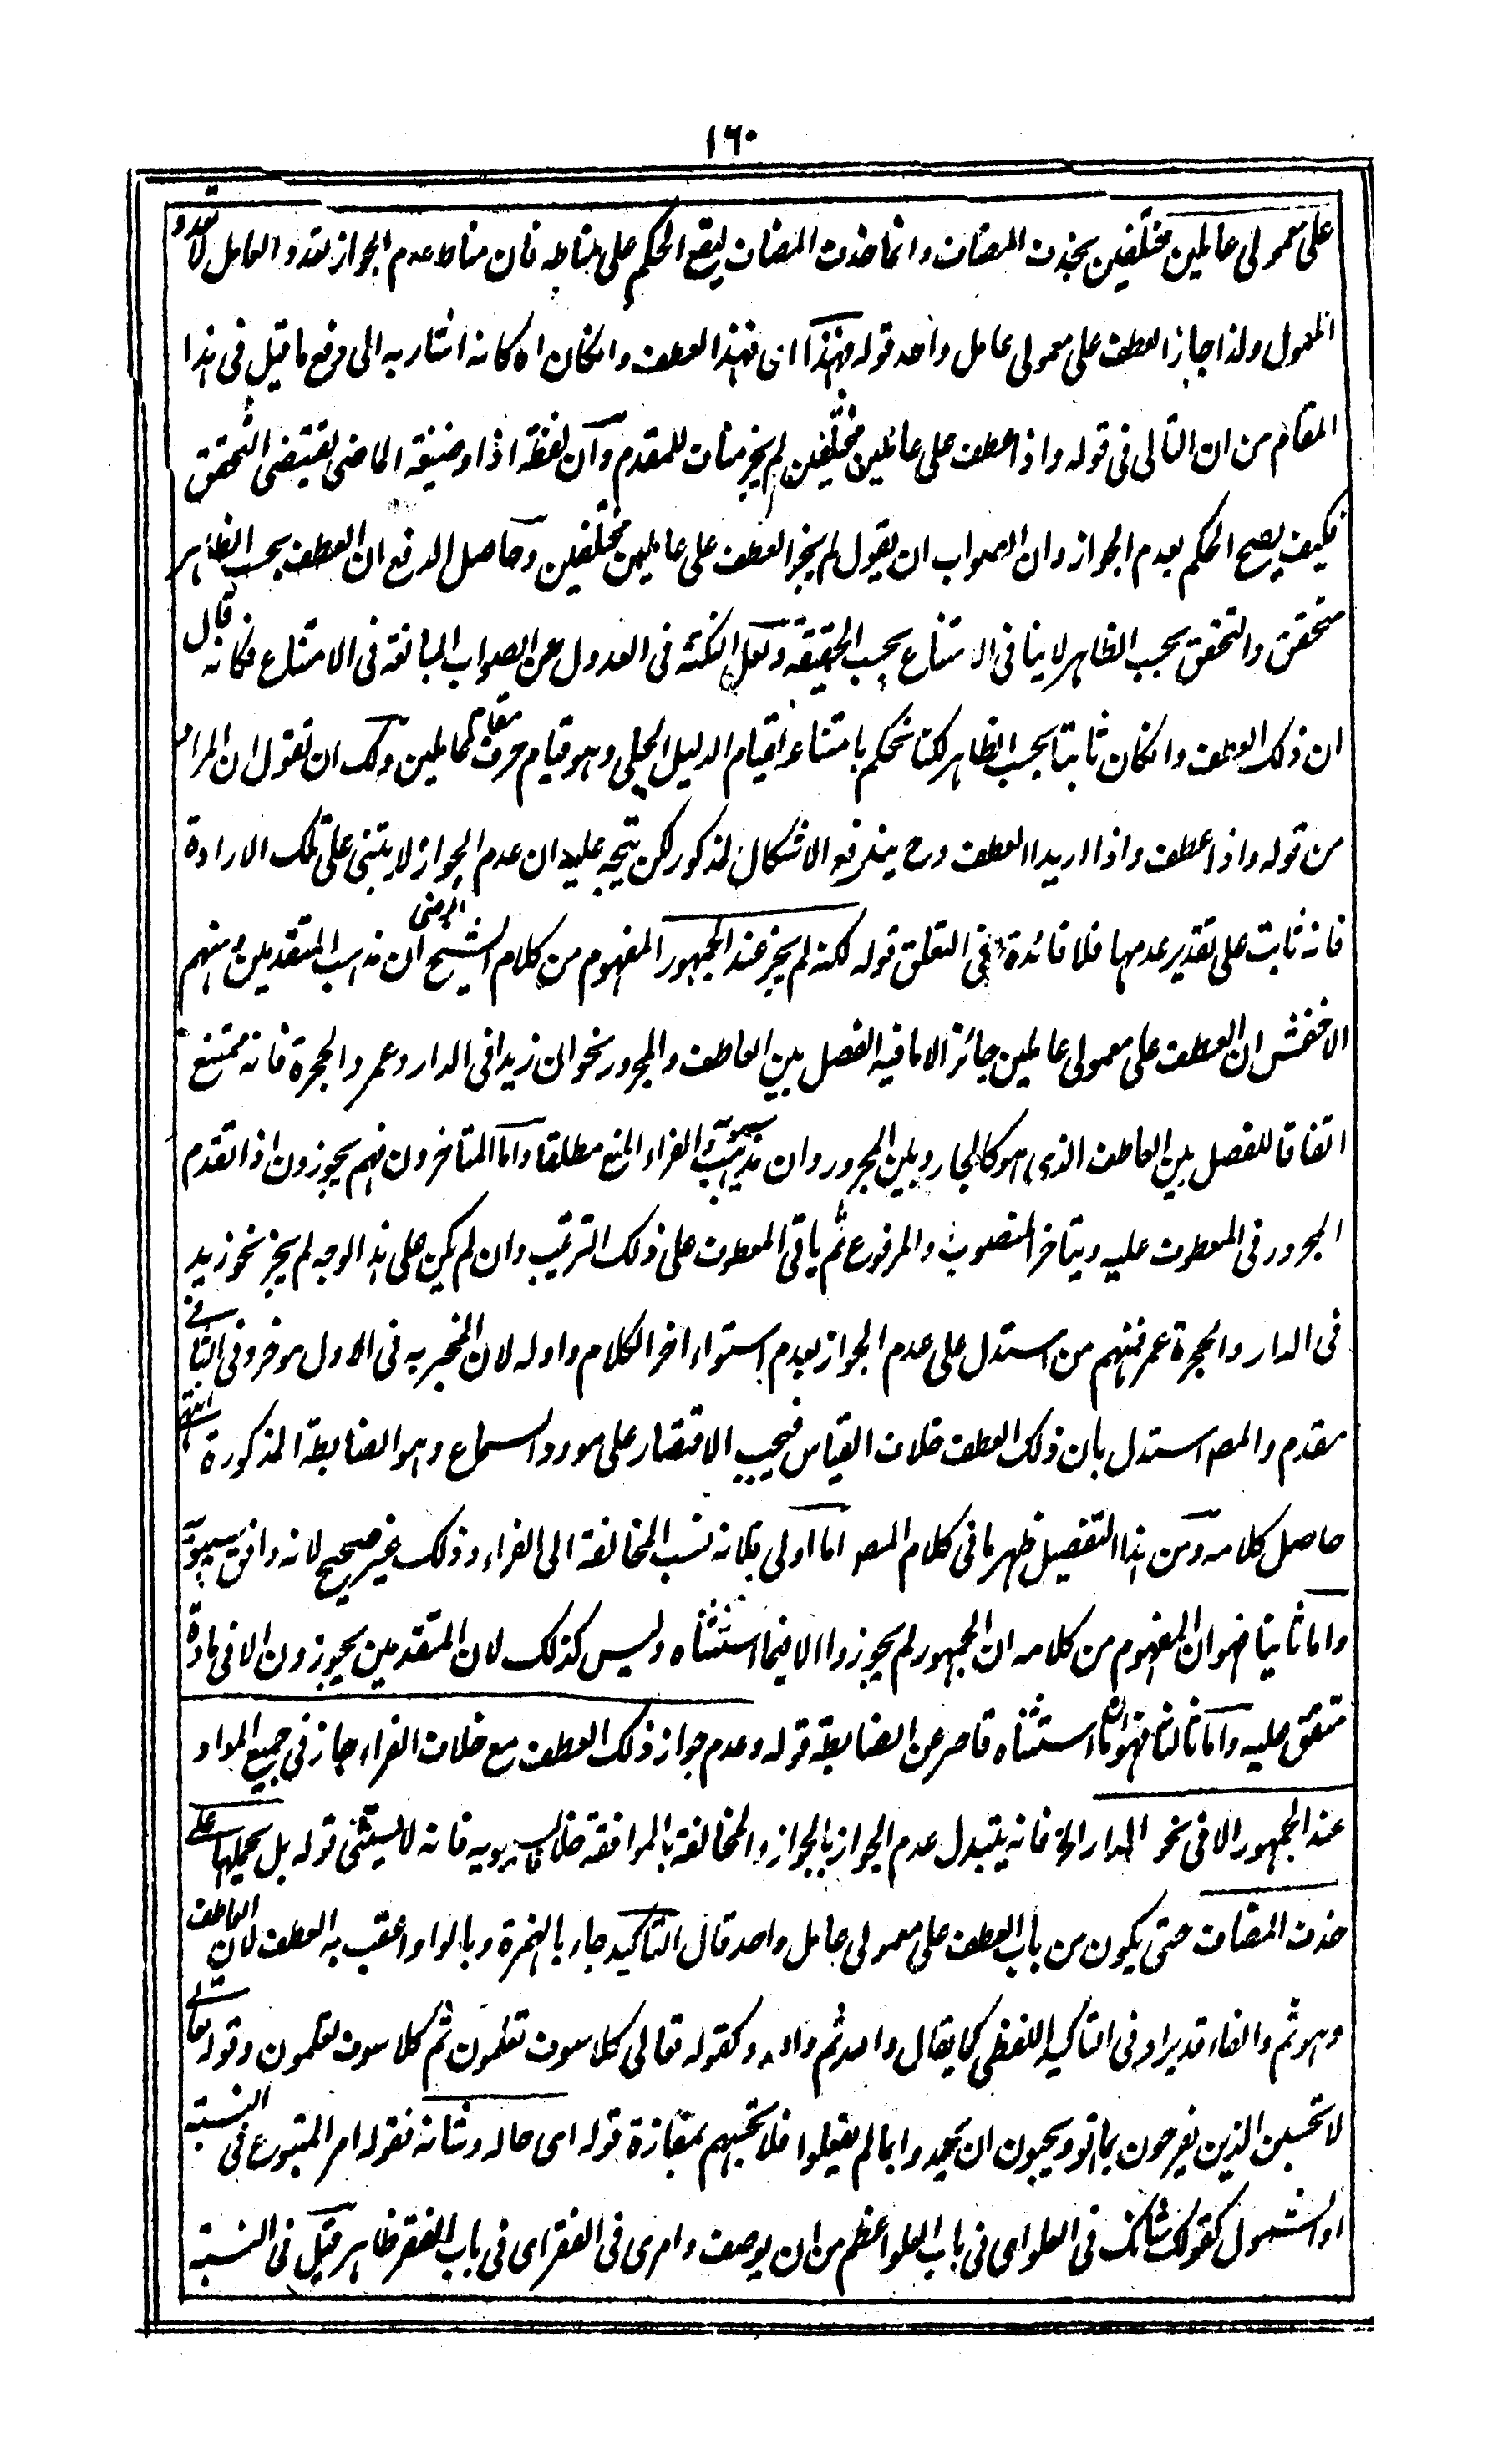 ١٦٠
على معمولى عاملين مختلفين بحذف المضاف وانما حذف المضاف ليقع الحكم على مناطه فان مناط عدم الجواز تعدد العامل لا تعدد
المعمول ولذا جاز العطف على معمولى عامل واحد قوله فهذا اى فهذا العطف وانكان اه كانه اشار به الى دفع ما قيل فى هذا
المقام من ان التالى فى قوله واذا عطف على عاملين مختلفين لم يجز مناف للمقدم وان لفظة اذا وصيغة الماضى يقتضى التحقق
فكيف يصح الحكم بعدم الجواز وان الصواب ان يقول لم يجز العطف على عاملين مختلفين وحاصل الدفع ان العطف بحسب الظاهر
متحقق والتحقق بحسب الظاهر لا ينافى الامتناع بحسب الحقيقة ولعل النكتة فى العدول عن الصواب المبالغة فى الامتناع فكانه قال
ان ذلك العطف وانكان ثابتا بحسب الظاهر لكنا نحكم بامتناعه لقيام الدليل الجلى وهو قيام حرف مقام عاملين ولك ان تقول ان المراد
من قوله واذا عطف واذا اريد العطف وح يندفع الاشكال المذكور لكن يتجه عليه ان عدم الجواز لا يبتنى على تلك الارادة
فانه ثابت على تقدير عدمها فلا فائدة فى التعلق قوله لكنه لم يجز عند الجمهور المفهوم من كلام الشيخ الرضى ان مذهب المتقدمين ومنهم
الاخفش ان العطف على معمولى عاملين جائز الا ما فيه الفصل بين العاطف والمجرور نحو ان زيدا فى الدار وعمر والحجرة فانه ممتنع
اتفاقا للفصل بين العاطف الذى هو كالجار وبين المجرور وان مذهب سيبويه والفراء المنع مطلقا واما المتاخرون فهم يجوزون اذا تقدم
المجرور فى المعطوف عليه ويتاخر المنصوب والمرفوع ثم ياتى المعطوف على ذلك الترتيب وان لم يكن على هذا الوجه لم يجز نحو زيد
فى الدار والحجرة عمر فمنهم من استدل على عدم الجواز بعدم استواء اخر الكلام واوله لان المخبر به فى الاول موخر وفى الثانى
مقدم والمصـ استدل بان ذلك العطف خلاف القياس فيجب الاقتصار على مورد السماع وهو الضابطة المذكورة انتهى
حاصل كلامه ومن هذا التفصيل ظهر ما فى كلام المصـ اما اولى فلانه نسب المخالفة الى الفراء وذلك غير صحيح لانه وافق سيبويه
واما ثانيا فهو ان المفهوم من كلامه ان الجمهور لم يجوزوا الا فيما استثناه وليس كذلك لان المتقدمين يجوزون الا فى مادة
متفق عليه واما ثالثا فهو ان ما استثناه قاصر عن الضابطة قوله وعدم جواز ذلك العطف مع خلاف الفراء جاز فى جميع المواد
عند الجمهور الا فى نحو الدار الخ فانه يتبدل عدم الجواز بالجواز والمخالفة بالموافقة خلافا لسيبويه فانه لا يستثنى قوله بل يحملها على
حذف المضاف حتى يكون من باب العطف على معمولى عامل واحد قال التاكيد جاء بالهمزة وبالواو اعقب به العطف لان العاطف
وهو ثم والفاء قد يراد فى التاكيد اللفظى كما يقال والله ثم والله وكقوله تعالى كلا سوف تعلمون ثم كلا سوف تعلمون وقوله تعالى
لا تحسبن الذين يفرحون بما اتو ويحبون ان يحمدوا بما لم يفعلوا فلا تحسبنهم بمفازة قوله اى حاله وشانه فقوله امر المتبوع فى النسبة
او الشمول كقولك شانك فى العلو اى فى باب العلو اعظم من ان يوصف وامرى فى الفقر اى فى باب الفقر ظاهر قيل فى النسبة